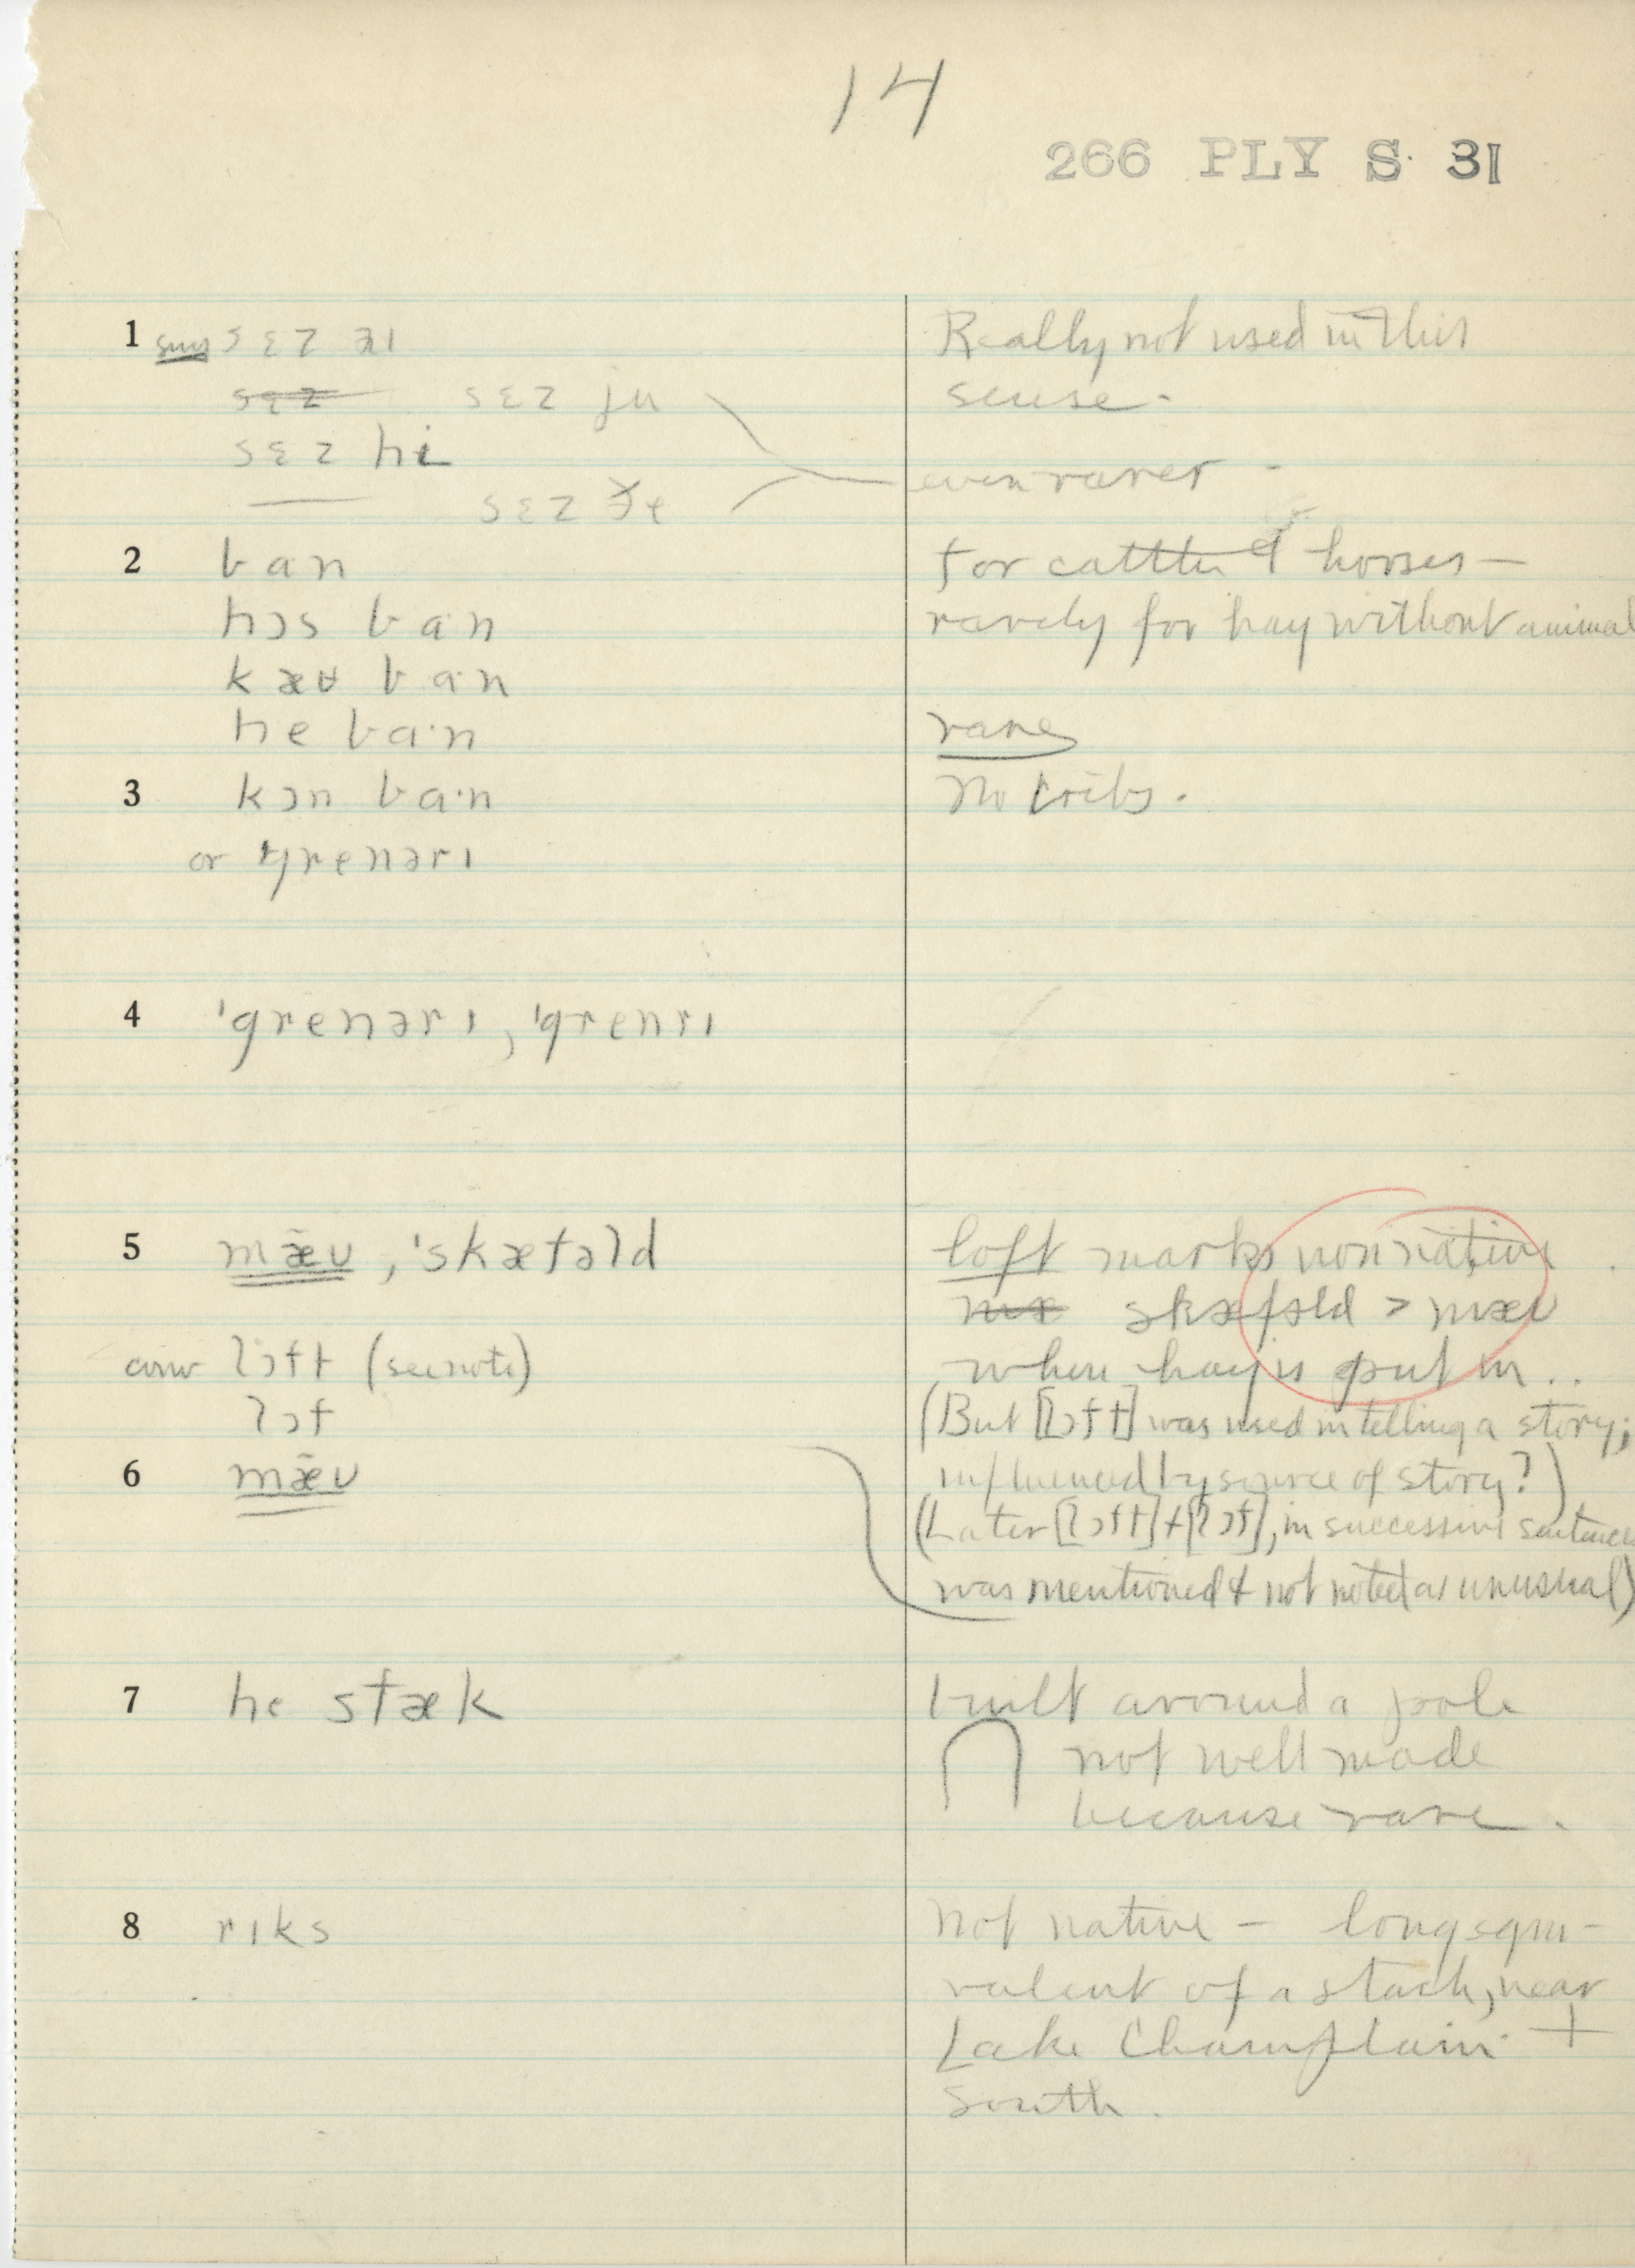 14
266 PLY S 31
1 sug sɛz aɪ
Really not used in this
sɛz sɛz ju
sense.
sɛz hi
even rarer -
sɛz ðe
2 ban
for cattle & horses —
hɔs ban
rarely for hay without animal
kæʉ ban
he ba·n
rare
3 kɔn ba·n
No cribs.
or grenərɪ
4 'grenərɪ, 'grenrɪ
5 mæ̃ʊ, 'skæfəld
loft marks non native.
mæ skæfəld > mæʊ
conv lɔft (see note)
when hay is put in..
lɔf
(But [lɔft] was used in telling a story;
6 mæ̃ʊ
influenced by source of story?)
(Later [lɔft] + [lɔf], in successive sentences
was mentioned & not noted as unusual)
7 he stæk
built around a pole
not well made
because rare.
8 rɪks
not native — long equi-
valent of a stack, near
Lake Champlain +
South.